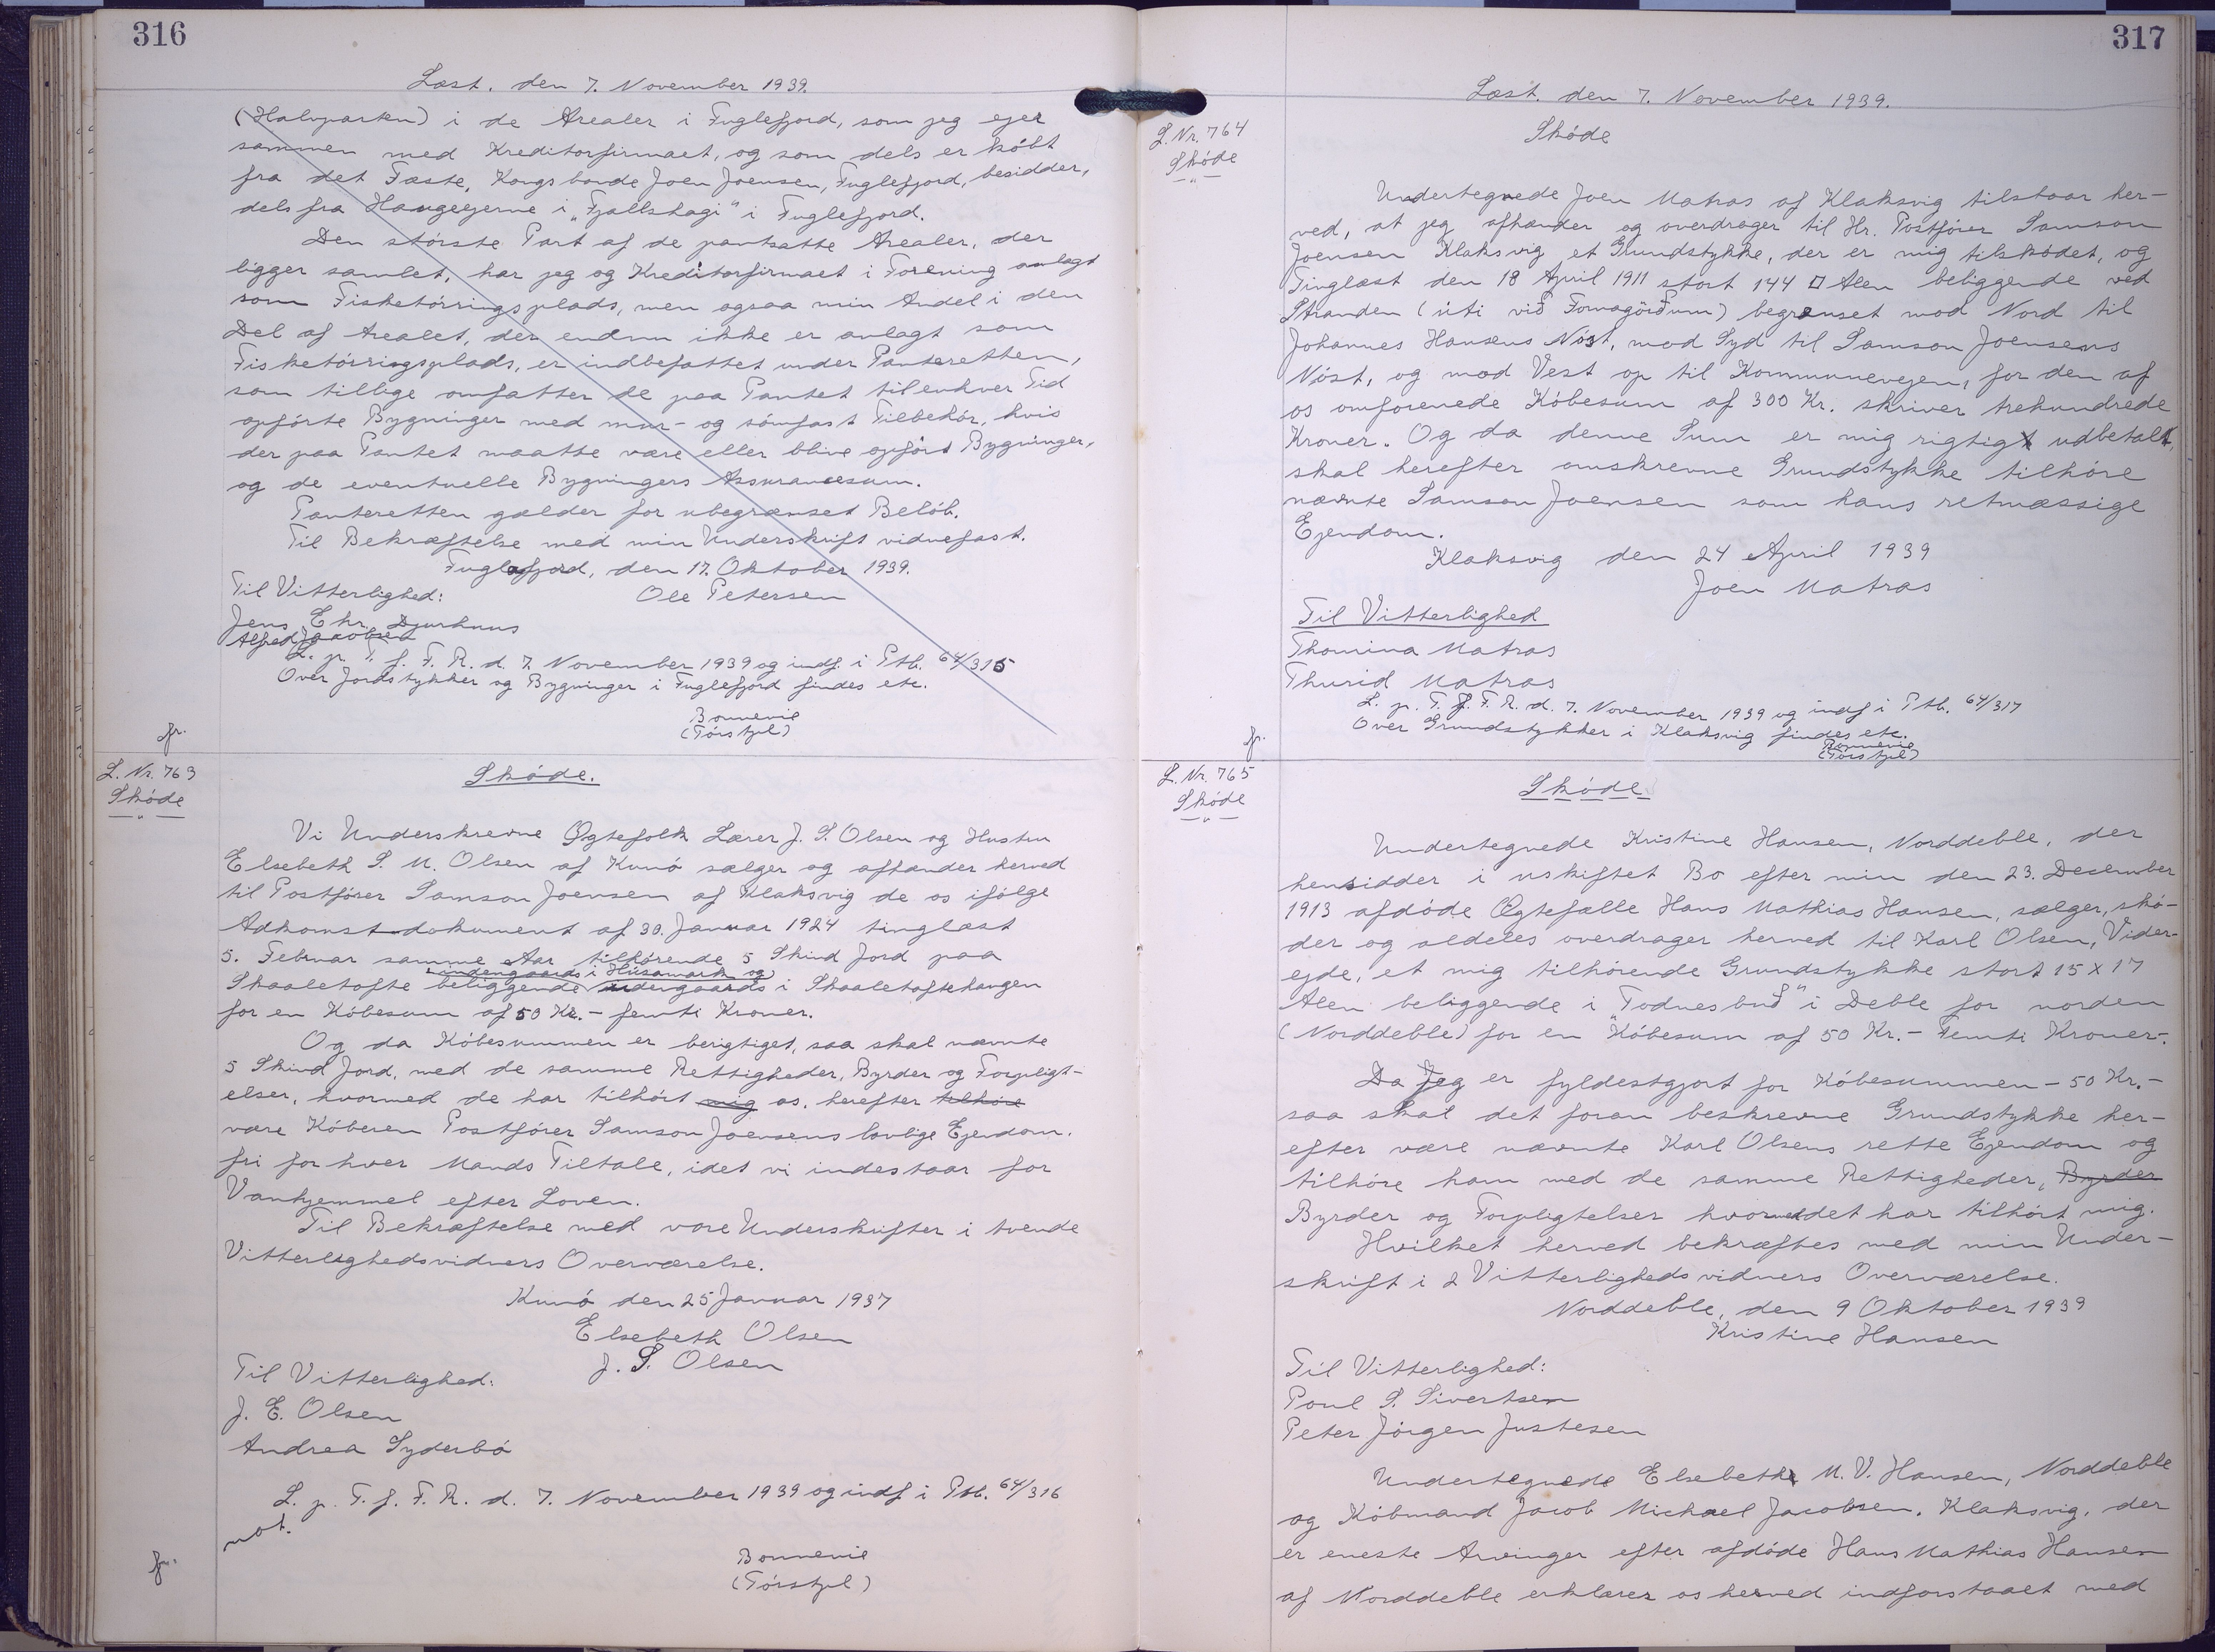 316
Læst. den 7. November 1939.
(Halvparten) i de Arealer i Fuglefjord, som jeg ejer
sammen med Kreditorfirmaet, og som dels er købt
fra det Fæste, Kongsbonde Joen Joensen, Fuglefjord, besidder,
dels fra Haugeejerne i "Fjallshagi" i Fuglefjord.
Den største Part af de pantsatte Arealer, der
ligger samlet, har jeg og Kreditorfirmaet i Forening anlagt
som Fisketörringsplads, men ogsaa min Andel i den
Del af Arealet, der endnu ikke er anlagt som
Fisketörringsplads, er indbefattet under Panteretten,
som tillige omfatter de paa Pantet tilenhver Tid
opförte Bygninger med mur- og sömfast Tilbehör, hvis
der paa Pantet maatte være eller blive opfört Bygninger,
og de eventuelle Bygningers Assurancesum.
Panteretten gælder for ubegrænset Beløb.
Til Bekræftelse med min Underskrift vidnefast.
Fuglefjord, den 17. Oktober 1939.
Til Vitterlighed: Ole Petersen
Jens Chr. Djurhuus
Alfred Jacobsen
L. p. T. f. F. R. d. 7. November 1939 og indf. i Ptb. 64/315
Over Jordstykker og Bygninger i Fuglefjord findes etc.
Bonnevie
(Tórstjpl)
fr.
L. Nr. 763
Skóde
Skóde.
Vi Underskrevne Ægtefolk Lærer J. S. Olsen og Hustru
Elsebeth S. M. Olsen af Kunó sælger og afhænder herved
til Postförer Samson Joensen af Klaksvig de os ifölge
Adkomstdokument af 30. Januar 1924 tinglæst
5. Februar samme Aar tilhörende 5 Skind Jord paa
indengaards i Húsamark og
Skaaletofte beliggende udengaards i Skaaletoftehaugen
for en Köbesum af 50 Kr. - femti Kroner.
Og da Köbesummen er berigtiget, saa skal nævnte
5 Skind Jord, med de samme Rettigheder, Byrder og Forpligt-
elser, hvormed de har tilhört mig os, herefter tilhöre
være Köberen Postförer Samson Joensens lovlige Ejendom.
fri for hver Mands Tiltale, idet vi indestaar for
Vanhjemmel efter Loven.
Til Bekræftelse med vore Underskrifter i tvende
Vitterlighedsvidners Overværelse.
Kunó den 25 Januar 1937
Elsebeth Olsen
J. S. Olsen
Til Vitterlighed:
J. E. Olsen
Andrea Syderbó
L. p. T. f. F. R. d. 7. November 1939 og indf i Ptb. 64/316
not.
Bonnevie
(Tórstjpl)
fr.
317
Læst. den 7. November 1939.
L. Nr. 764
Skóde
Skóde
Undertegnede Joen Matras af Klaksvig tilstaar her-
ved, at jeg afhænder og overdrager til Hr. Postförer Samson
Joensen Klaksvig et Grundstykke, der er mig tilskódet, og
Tinglæst den 18 April 1911 stort 144 □ Alen beliggende ved
Stranden (úti við Fornagörðum) begrænset mod Nord til
Johannes Hansens Nöst, mod Syd til Samson Joensens
Nöst, og mod Vest op til Kommunevejen, for den af
os omforenede Köbesum af 300 Kr. skriver trehundrede
Kroner. Og da denne Sum er mig rigtigt udbetalt,
skal herefter omskrevne Grundstykke tilhöre
nævnte Samson Joensen som hans retmæssige
Ejendom.
Klaksvig den 24 April 1939
Joen Matras
Til Vitterlighed
Thomina Matras
Thurid Matras
L. p. T. f. F. R. d. 7. November 1939 og indf i Ptb. 64/317
Over Grundstykker i Klaksvig findes etc.
Bonnevie
(Tórstjpl)
fr.
L. Nr. 765
Skóde
Skóde.
Undertegnede Kristine Hansen, Norddeble, der
hensidder i uskiftet Bo efter min den 23. December
1913 afdöde Ægtefælle Hans Mathias Hansen, sælger, skó-
der og aldeles overdrager herved til Karl Olsen, Vider-
ejde, et mig tilhörende Grundstykke stort 15 x 17
Alen beliggende i "Todnesbud" i Deble for norden
(Norddeble) for en Köbesum af 50 Kr. - Femti Kroner-.
Da Jeg er fyldestgjort for Köbesummen - 50 Kr. -
saa skal det foran beskrevne Grundstykke her-
efter være nævnte Karl Olsens rette Ejendom og
tilhöre ham med de samme Rettigheder, Byrder
Byrder og Forpligtelser hvormed det har tilhört mig.
Hvilket herved bekræftes med min Under-
skrift i 2 Vitterlighedsvidners Overværelse.
Norddeble, den 9 Oktober 1939
Kristine Hansen
Til Vitterlighed:
Poul S. Sivertsen
Peter Jörgen Justesen
Undertegnede Elsebeth M. V. Hansen, Norddeble
og Köbmand Jacob Michael Jacobsen, Klaksvig, der
er eneste Arvinger efter afdöde Hans Mathias Hansen
af Norddeble erklærer os herved indforstaaet med